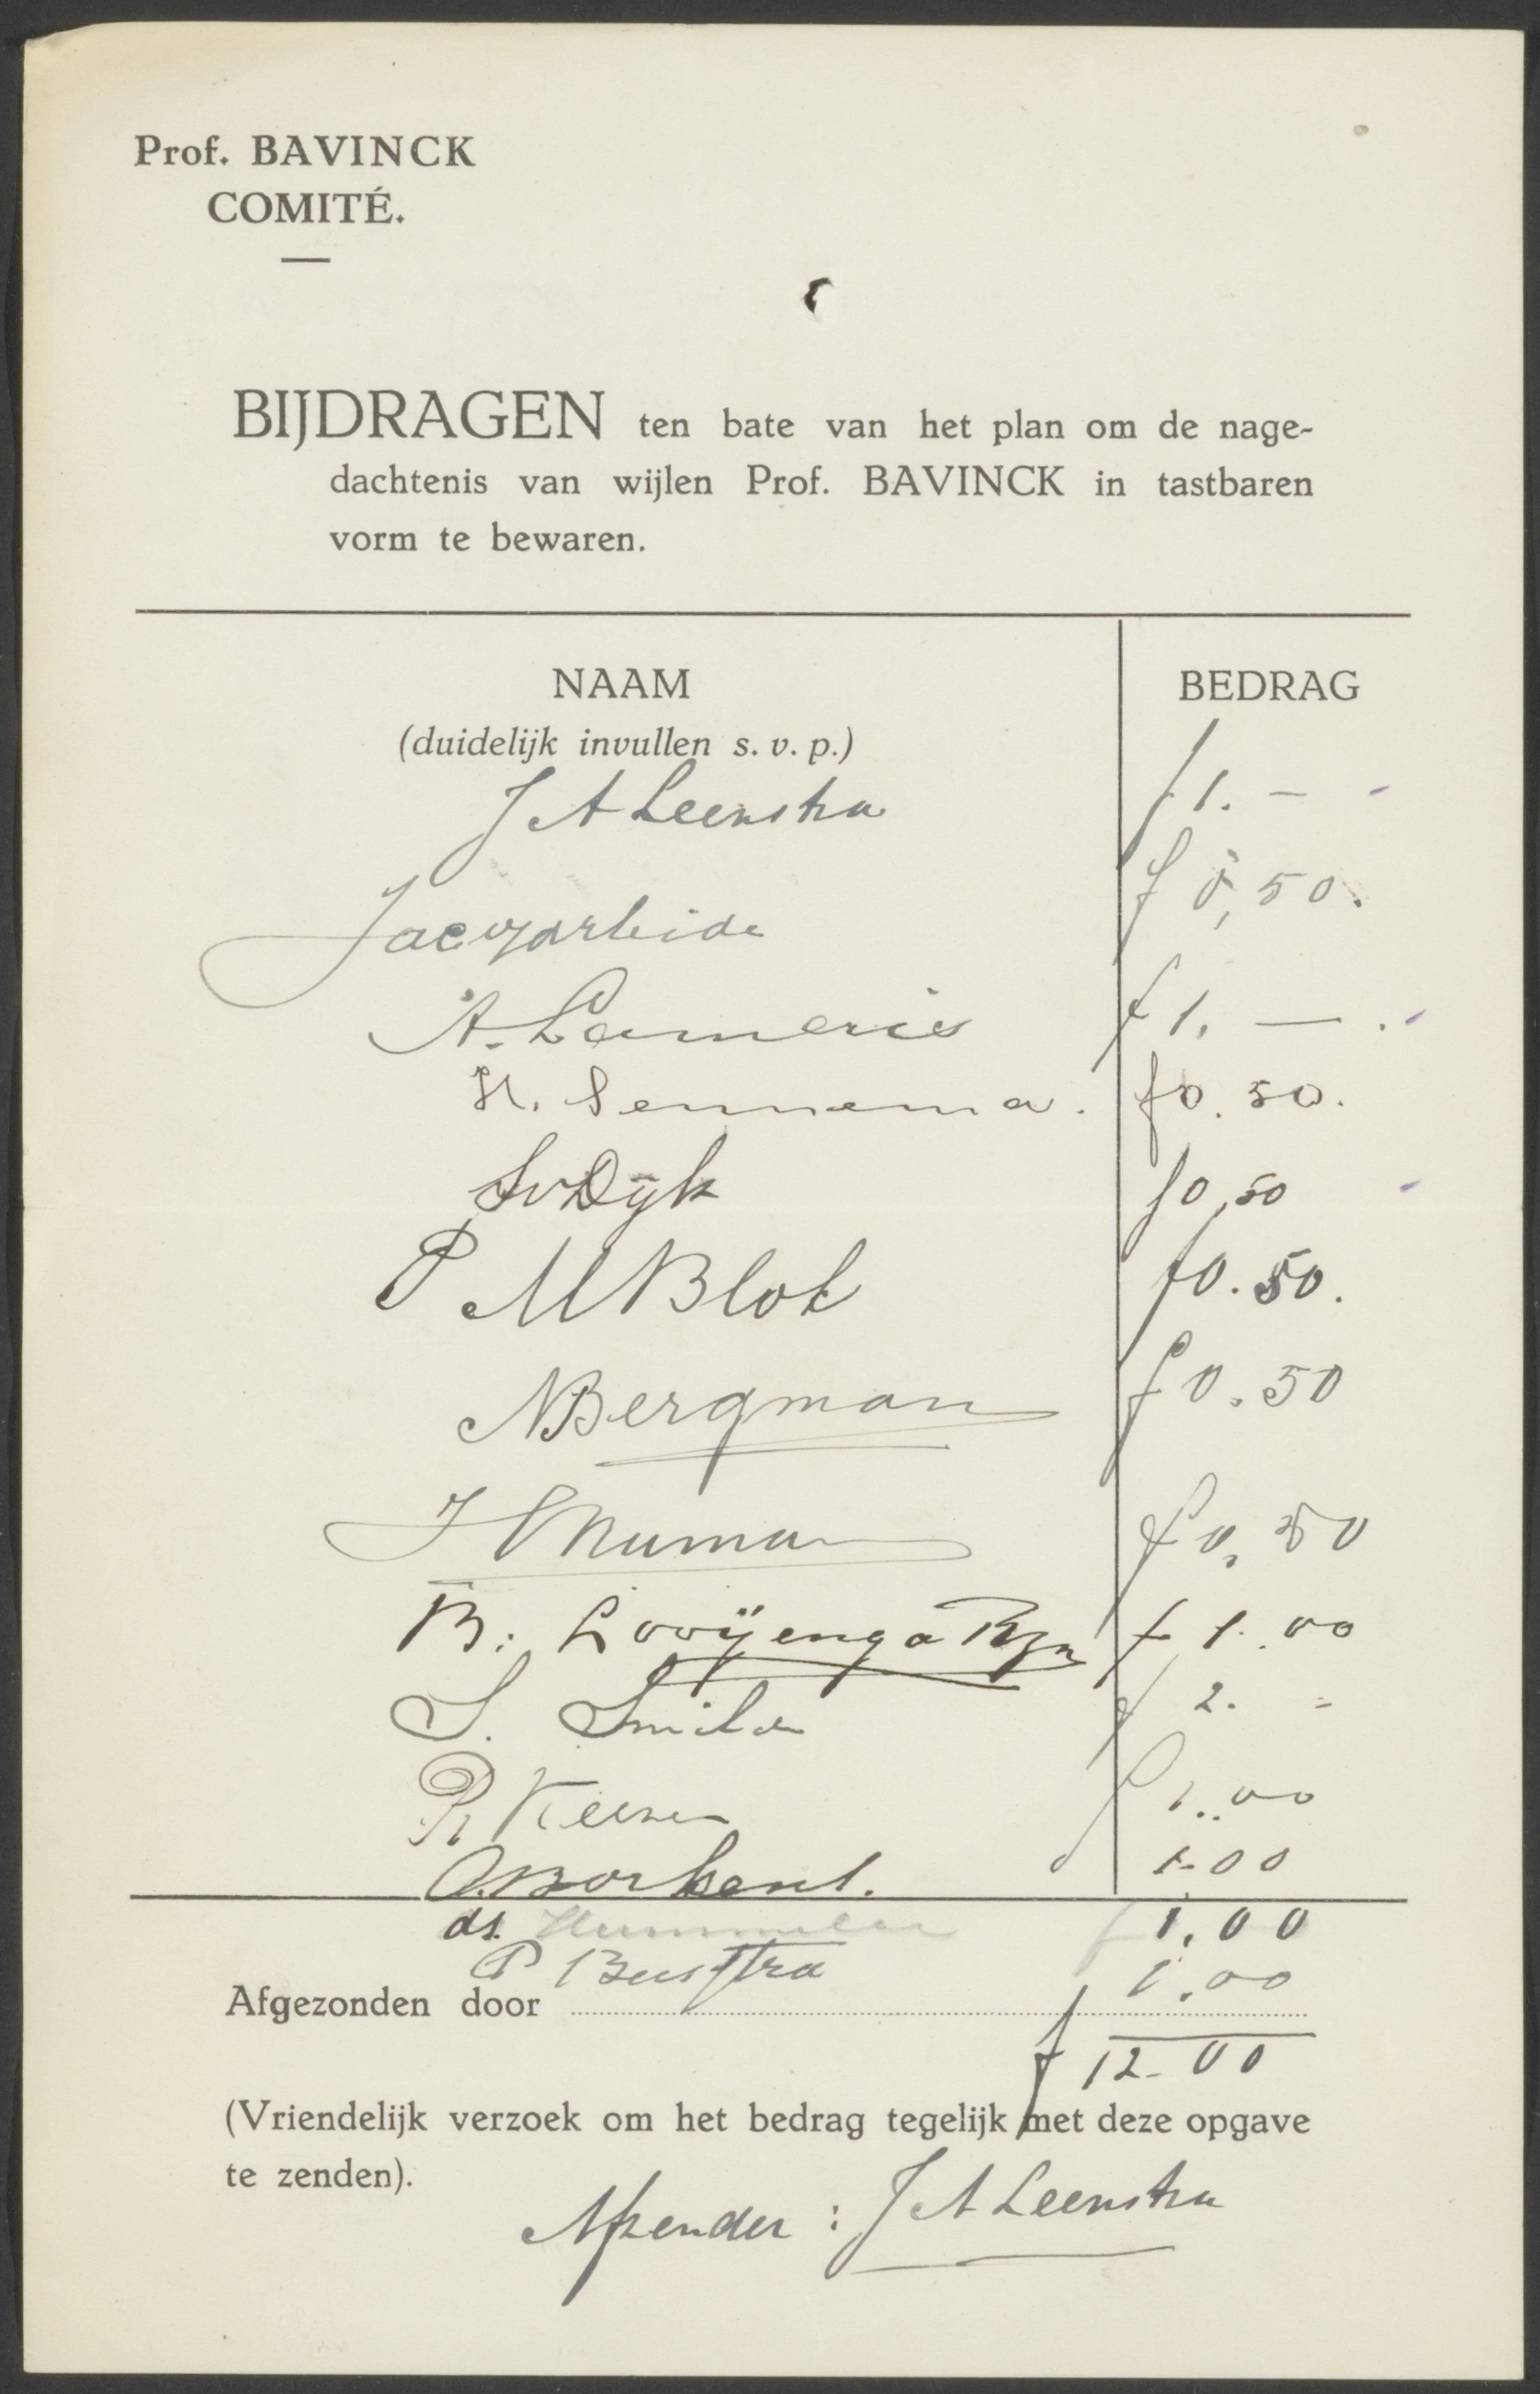 Prof. BAVINCK
COMITÉ.
BIJDRAGEN ten bate van het plan om de nage-
dachtenis van wijlen Prof. BAVINCK in tastbaren
vorm te bewaren.
NAAM BEDRAG
(duidelijk invullen s. v. p.)
J A Leenstra f 1. –
f 0,50.
A. Lameris f 1. —
H. Sennema. f 0.50.
S v Dijk f 0,50
P M Blok f 0.50.
N Bergman f 0.50
f 0,50
B. Looijenga Rzn f 1.00
S. Smilde f 2. =
R Keizer f 1.00
Borkent. 1.00
ds. Hummelen f 1,00
P Buistra 1.00
Afgezonden door
f 12-00
(Vriendelijk verzoek om het bedrag tegelijk met deze opgave
te zenden).
Afzender : J A Leenstra